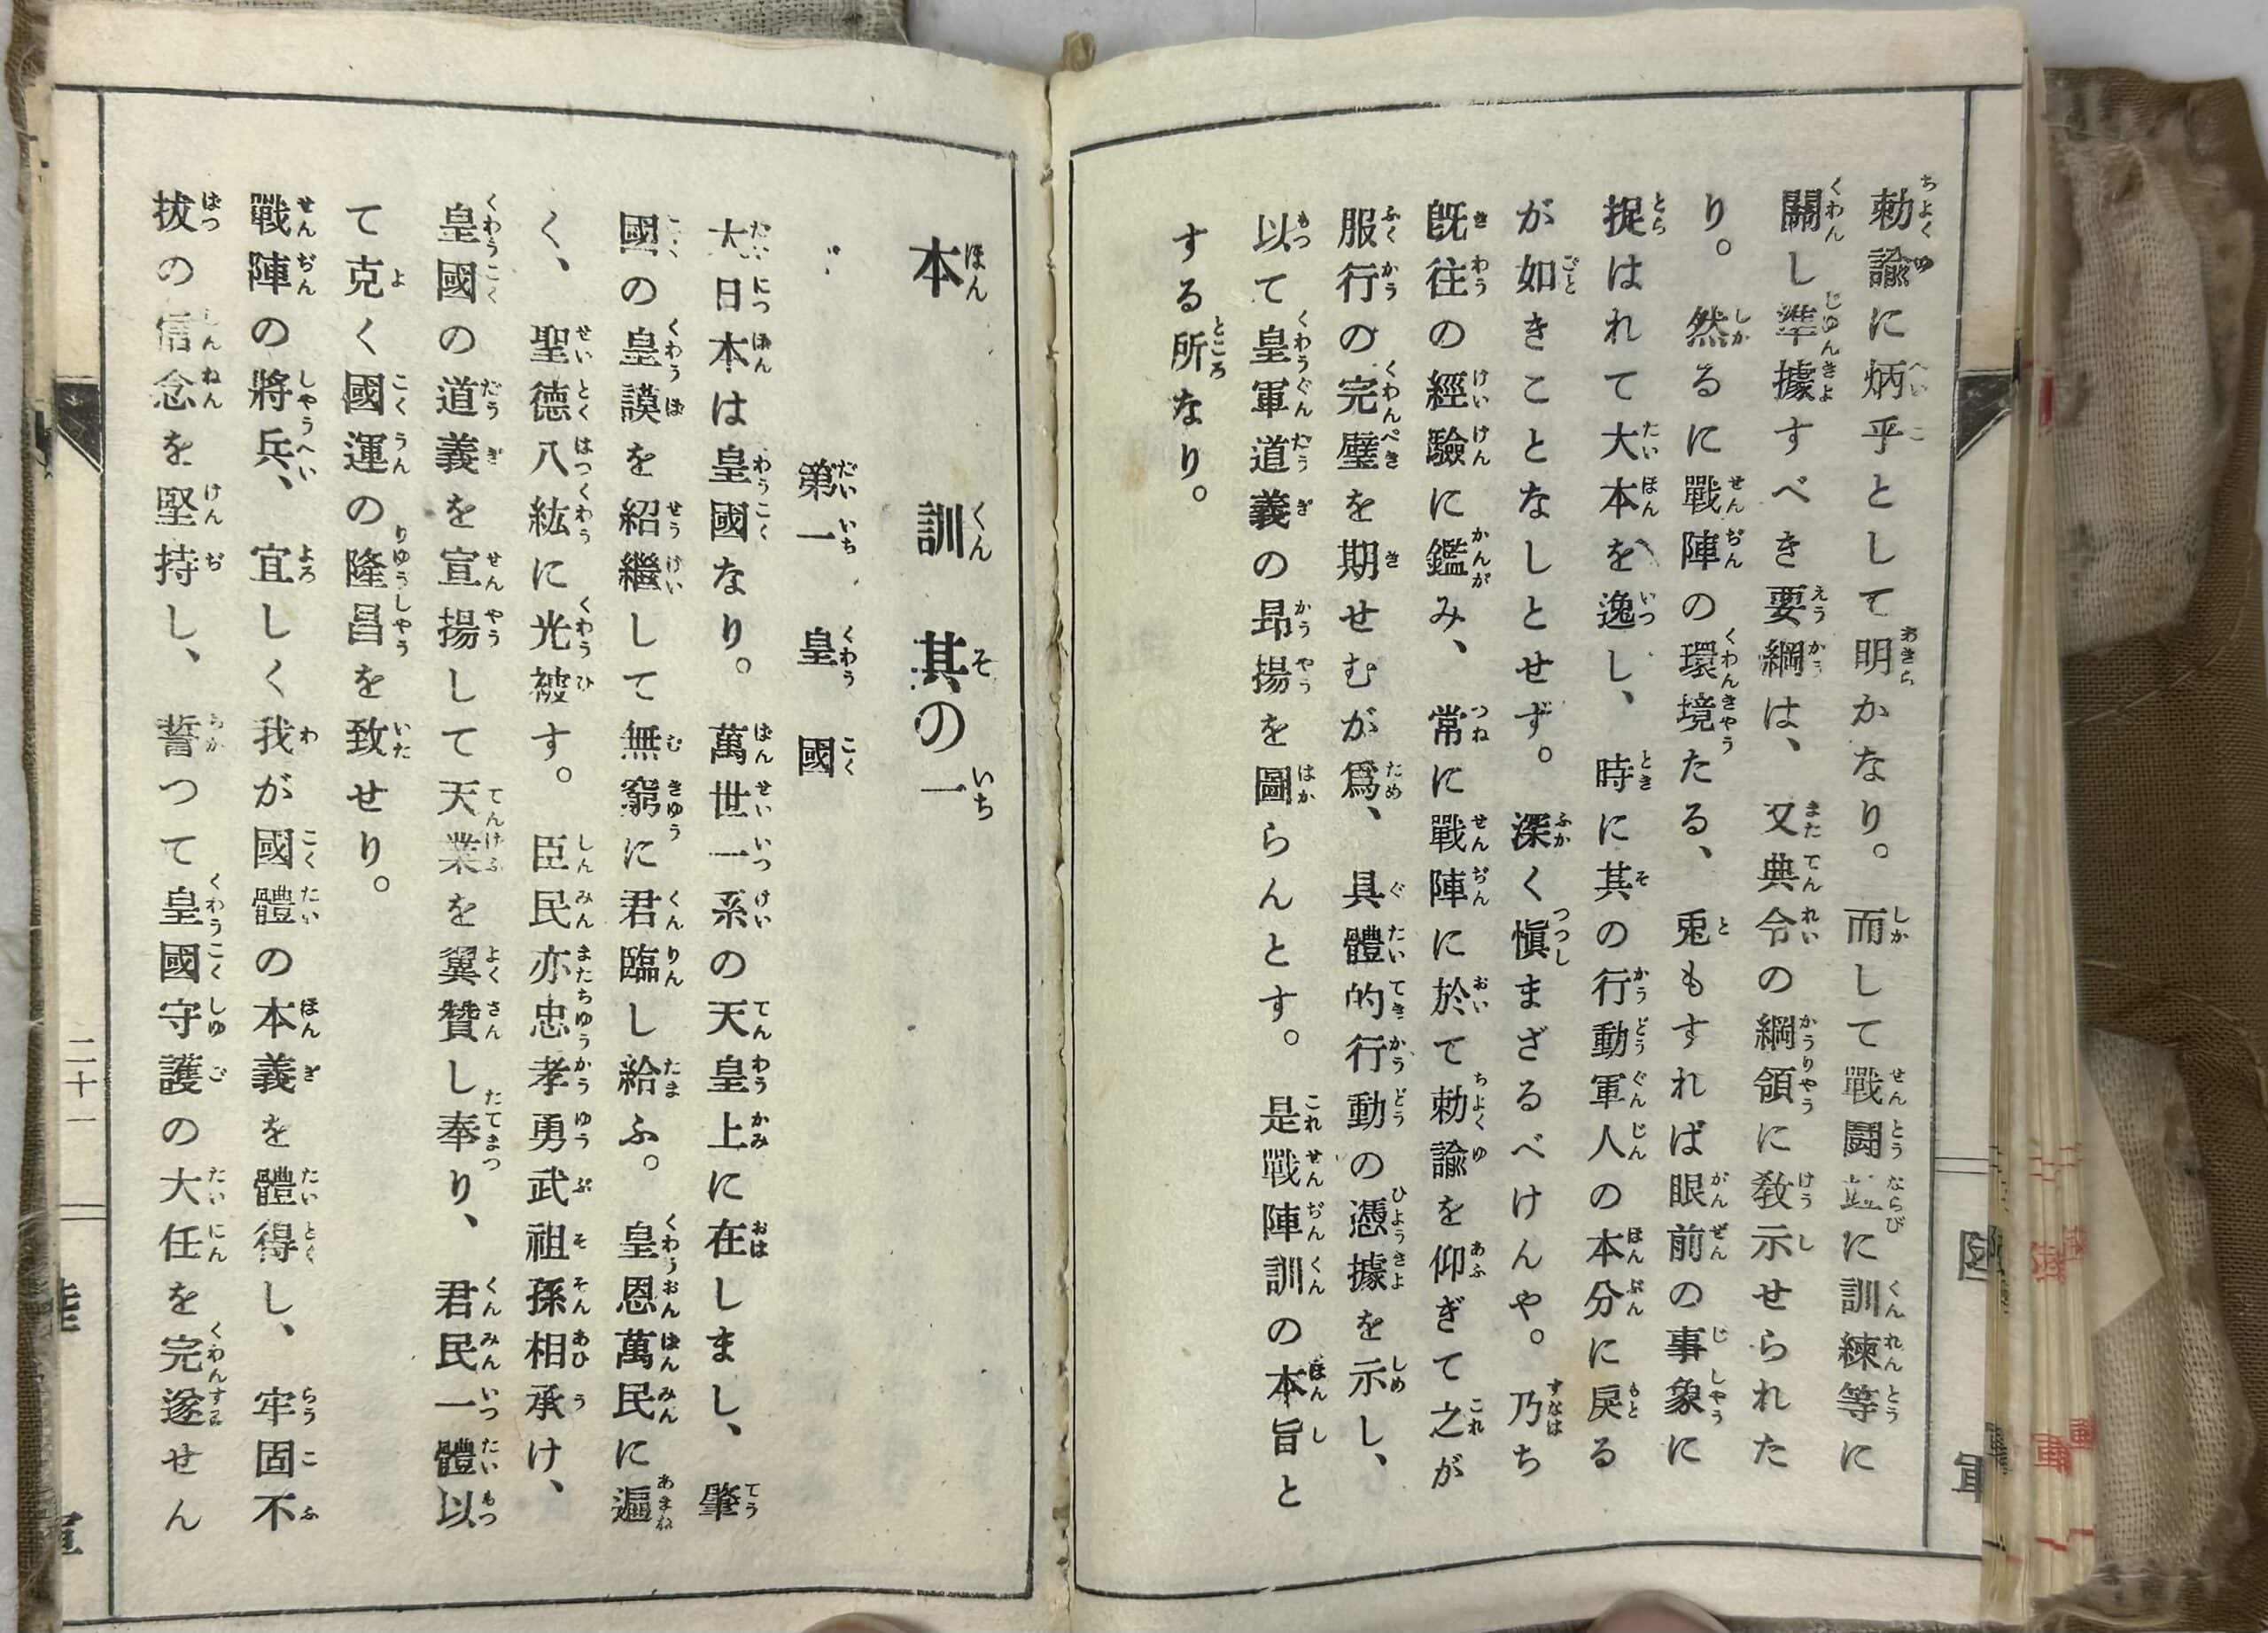 勅諭に炳乎として明かなり。而して戰闘並に訓練等に
關し準據すべき要綱は、又典令の綱領に敎示せられた
り。然るに戰陣の環境たる、兎もすれば眼前の事象に
捉はれて大本を逸し、時に其の行動軍人の本分に戾る
が如きことなしとせず。深く愼まざるべけんや。乃ち
既往の經驗に鑑み、常に戰陣に於て勅諭を仰ぎて之が
服行の完璧を期せむが爲、具體的行動の憑據を示し、
以て皇軍道義の昻揚を圖らんとす。是戰陣訓の本旨と
する所なり。
陸軍
本訓其の一
第一 皇國
大日本は皇國なり。萬世一系の天皇上に在しまし、肇
國の皇謨を紹繼して無窮に君臨し給ふ。皇恩萬民に遍
く、聖德八紘に光被す。臣民亦忠孝勇武祖孫相承け、
皇國の道義を宣揚して天業を翼贊し奉り、君民一體以
て克く國運の隆昌を致せり。
戰陣の將兵、宜しく我が國體の本義を體得し、牢固不
拔の信念を堅持し、誓つて皇國守護の大任を完遂せん
二十一